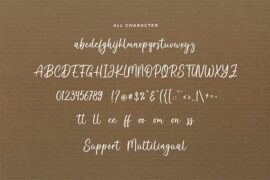 ALL CHARACTER
abcdefghijklmnopqrstuvwxyz
ABCDEFGHIJKLMNOPQRSTUVWXYZ
0123456789
tt ll ee ff oo om on ss
Support Multilingual